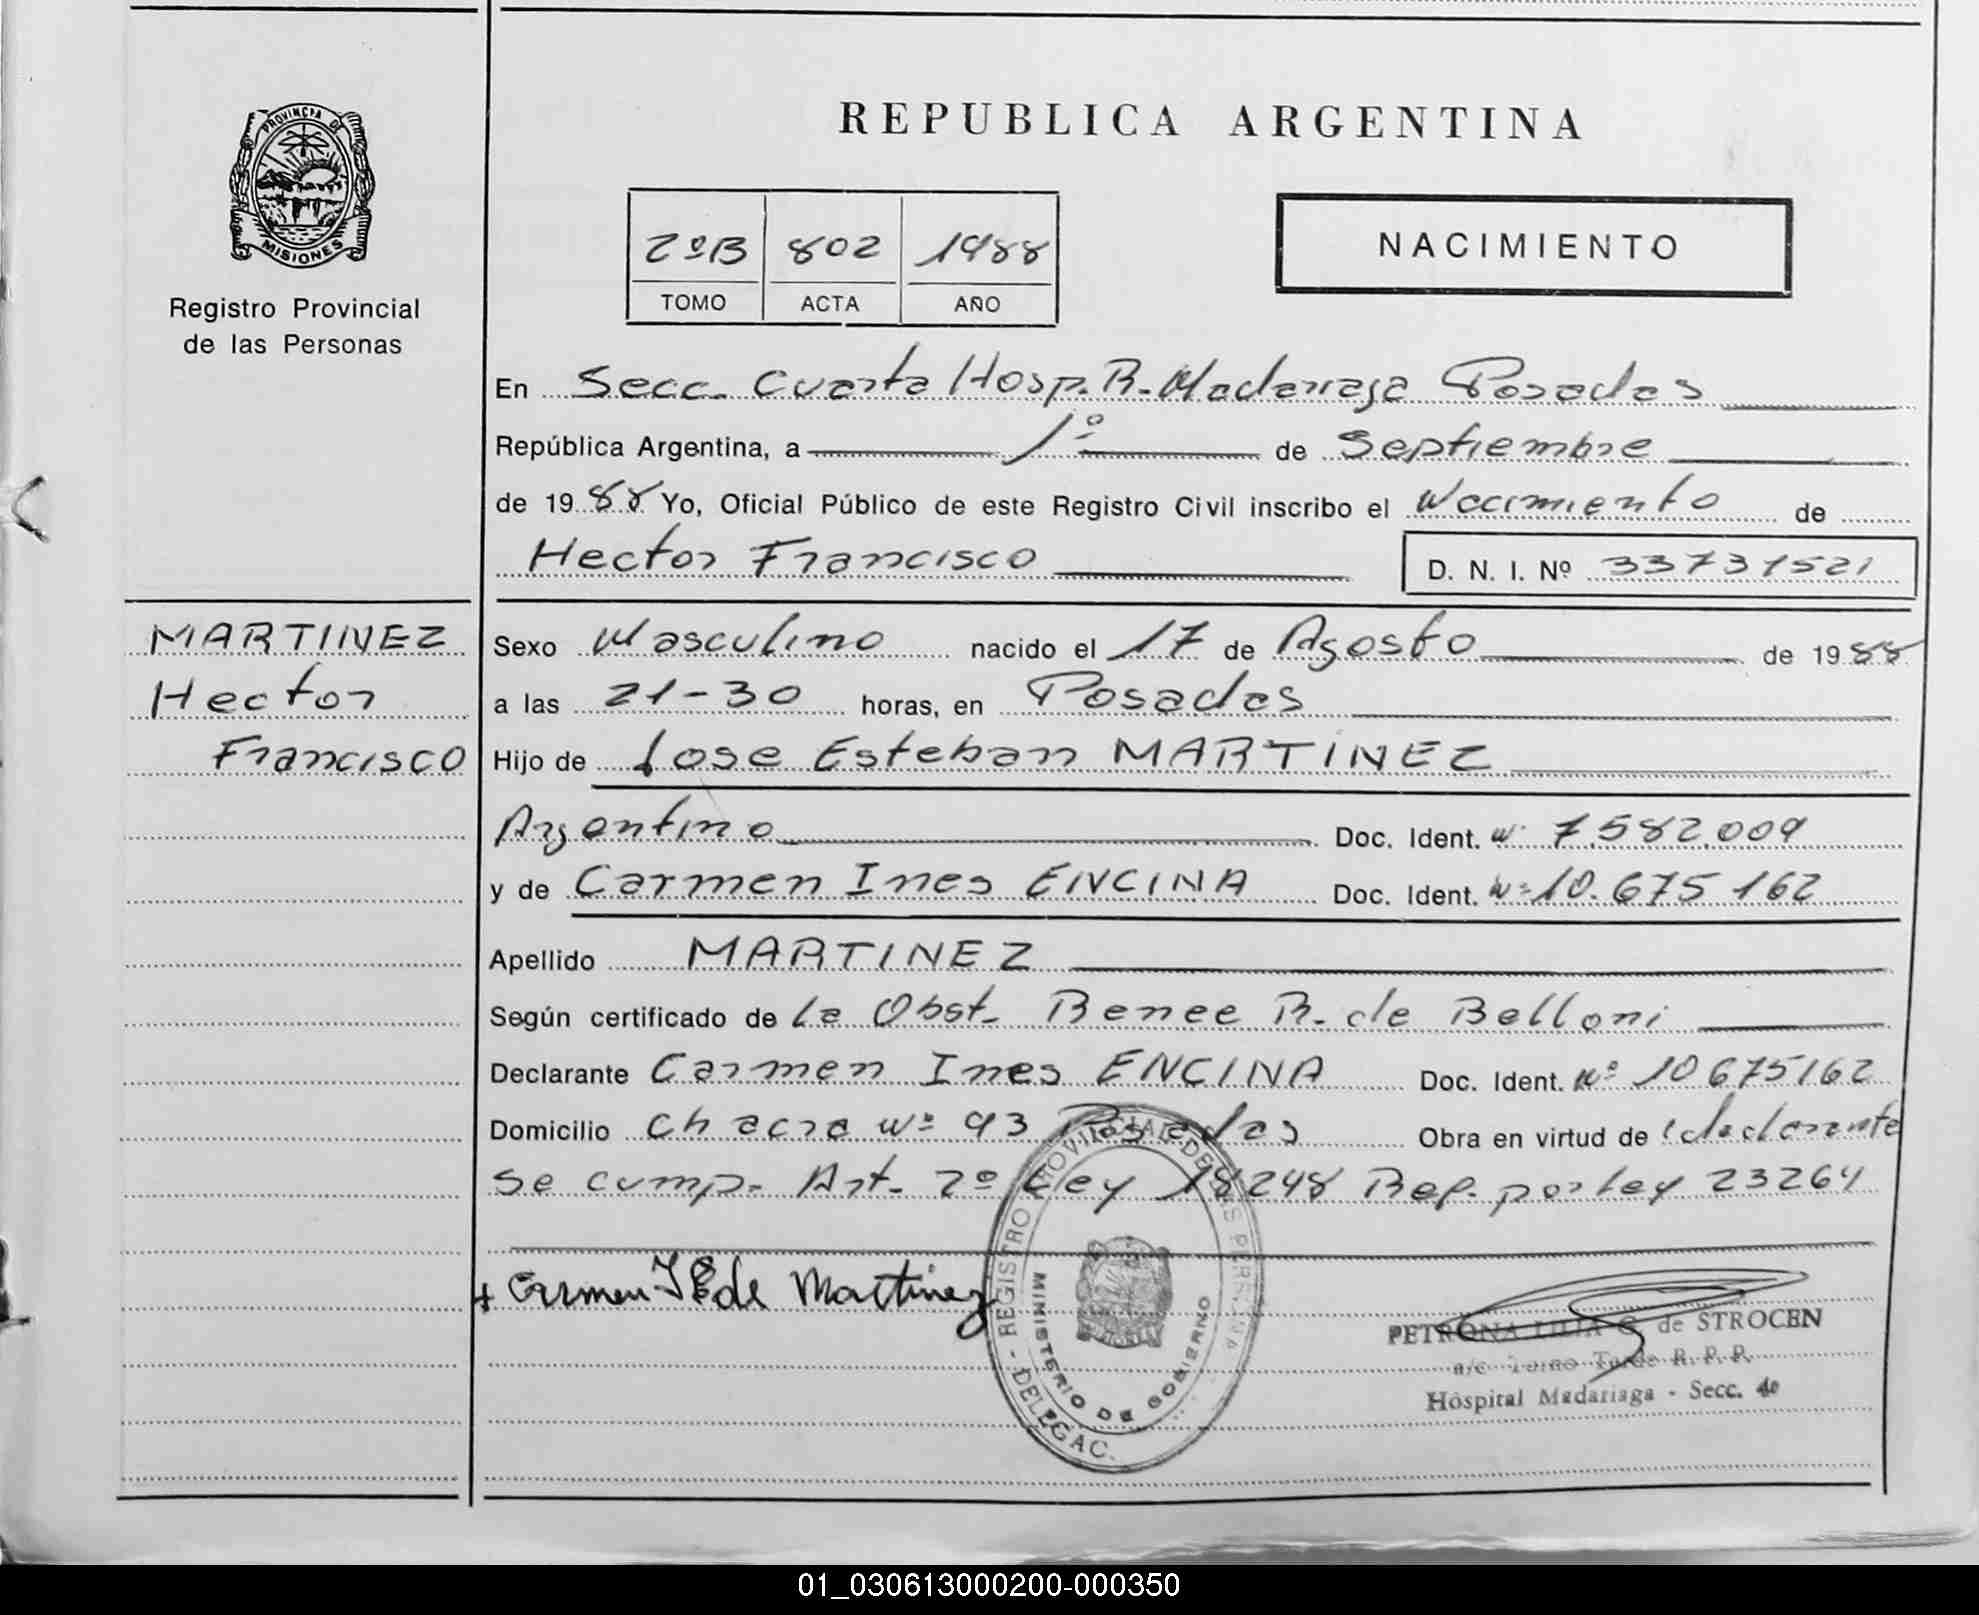 PROVINCIA DE
MISIONES
Registro Provincial
de las Personas
REPUBLICA ARGENTINA
2ºB 802 1988
TOMO ACTA AÑO
NACIMIENTO
En Secc. Cuarta Hosp. R. Madariaga Posadas
República Argentina, a 1º de Septiembre
de 1988 Yo, Oficial Público de este Registro Civil inscribo el Nacimiento de
Hector Francisco D. N. I. Nº 33731521
MARTINEZ
Hector
Francisco
Sexo Masculino nacido el 17 de Agosto de 1988
a las 21-30 horas, en Posadas
Hijo de Jose Esteban MARTINEZ
Argentino Doc. Ident. Nº 7.582.009
y de Carmen Ines ENCINA Doc. Ident. Nº 10.675162
Apellido MARTINEZ
Según certificado de la Obst. Renee R. de Belloni
Declarante Carmen Ines ENCINA Doc. Ident. Nº 10675162
Domicilio Chacra Nº 93 Posadas Obra en virtud de declarante
se cump. Art. 2º Ley 18248 Ref. por Ley 23264
+ Carmen I E de Martinez
REGISTRO PROVINCIAL DE LAS PERSONAS - DELEGAC.
MINISTERIO DE GOBIERNO
PETRONA LILIA G. de STROCEN
a/c Turno Tarde R. P. P.
Hospital Madariaga - Secc. 4º
01_030613000200-000350